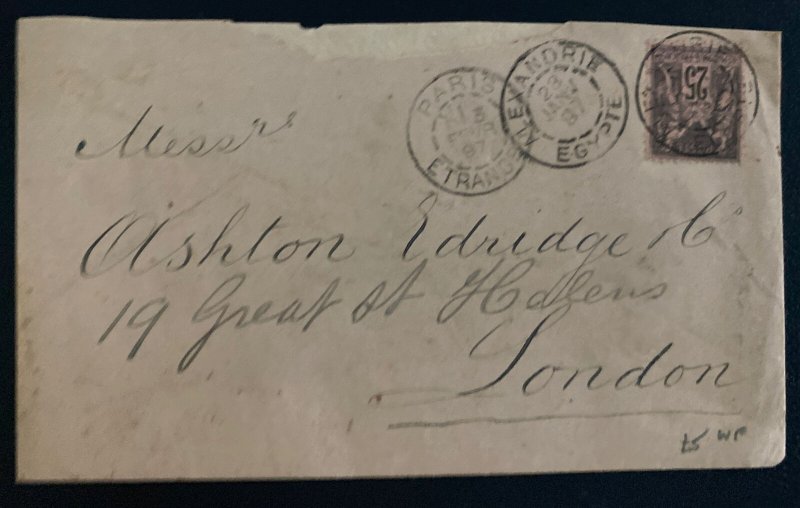 PARIS
ETRANGER
ALEXANDRIE
23
JANV
97
EGYPTE
25
Messrs
Ashton Edridge & Co
19 Great St Helens
London